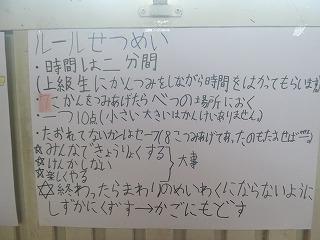 ルールせつめい
・時間は二分間
(上級生にかんつみをしながら時間をはかってもらいます)
かんをつみあげたらべつの場所におく
・一つ10点(小さい大きいはかんけいありません)
・たおれてないカンはセーフ(8こつみあげてあったのもたせば
☆みんなできょうりょくする
☆けんかしない 大事
☆楽しくやる
☆終わったらまわりのめいわくにならないように
しずかにくずす→かごにもどす